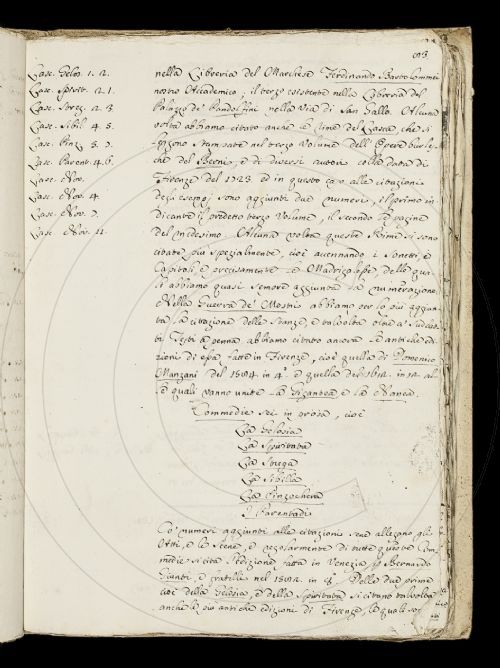 93
Lasc. Gelos. 1. 2.
Lasc. Spirit. 2. 1.
Lasc. Streg. 2. 3.
Lasc. Sibil. 4. 5.
Lasc. Pinz. 5. 7.
Lasc. Parent. 4. 6.
Lasc. Nov.
Lasc. Nov. 4.
Lasc. Nov. 7.
Lasc. Nov. 11.
nella Libreria del Marchese Ferdinando Bartolommei
nostro Accademico; il terzo esistente nella Libreria del
Palazzo de' Pandolfini nella Via di San Gallo. Alcuna
volta abbiamo citato anche le Rime del Lasca che si
fingono stampate nel terzo Volume dell'Opere burles-
che del Berni, e di diversi autori colla data di
Firenze del 1723. ed in questo caso alle citazioni
degli esempj sono aggiunti due numeri, il primo in-
dicante il predetto terzo Volume, il secondo le pagine
del medesimo. Alcuna volta queste Rime si sono
citate più spezialmente, cioè accennando i Sonetti, e
Capitoli, e precisamente le Madrigalesse, delle qua-
li abbiamo quasi sempre aggiunta la numerazione.
Nella Guerra de' Mostri abbiamo per lo più aggiun-
ta la citazione delle Stanze, e talvolta oltre a' suddet-
ti Testi a penna abbiamo citato ancora le antiche edi-
zioni di essa fatte in Firenze, cioè quella di Domenico
Manzani del 1584. in 4.º e quella del 1612. in 12. al-
le quali vanno unite La Gigantea e La Nanea.
Commedie sei in prosa, cioè
La Gelosia
La Spiritata
La Strega
La Sibilla
La Pinzochera
I Parentadi
Co' numeri aggiunti alle citazioni se ne allegano gli
Atti, e le Scene, e regolarmente di tutte queste Com-
medie si cita l'edizione fatta in Venezia p Bernardo
Giunti, e fratelli nel 1582. in 8.º Delle due prime
cioè della Gelosia, e della Spiritata si citano talvolta
anche le più antiche edizioni di Firenze, le quali so-